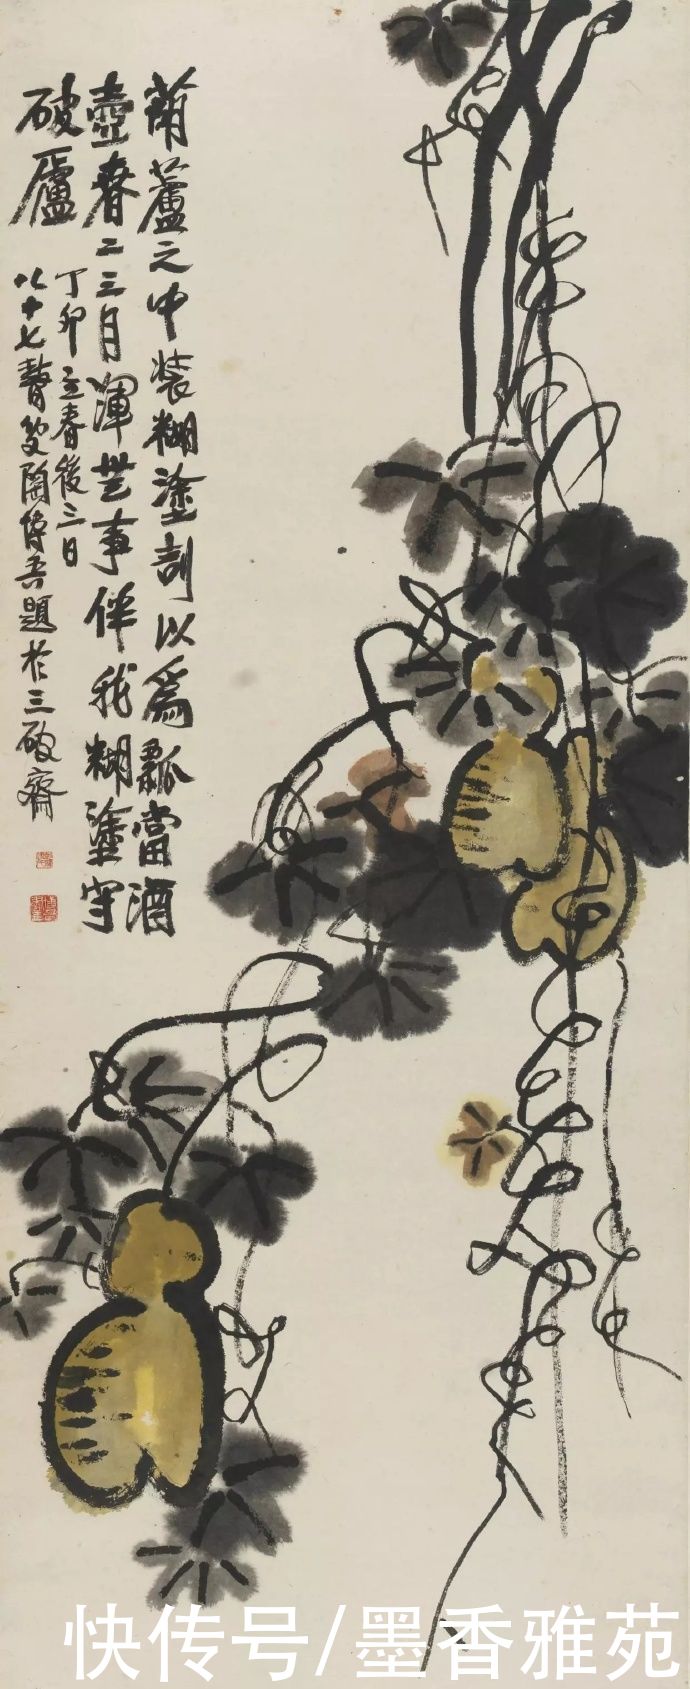 葫蘆之中裝糊塗剖以爲瓢當酒
壺春二三月渾無事伴我糊塗守
破廬
丁卯立春後三日
八十七瞽叟陶博吾題於三破齋
快传号/墨香雅苑